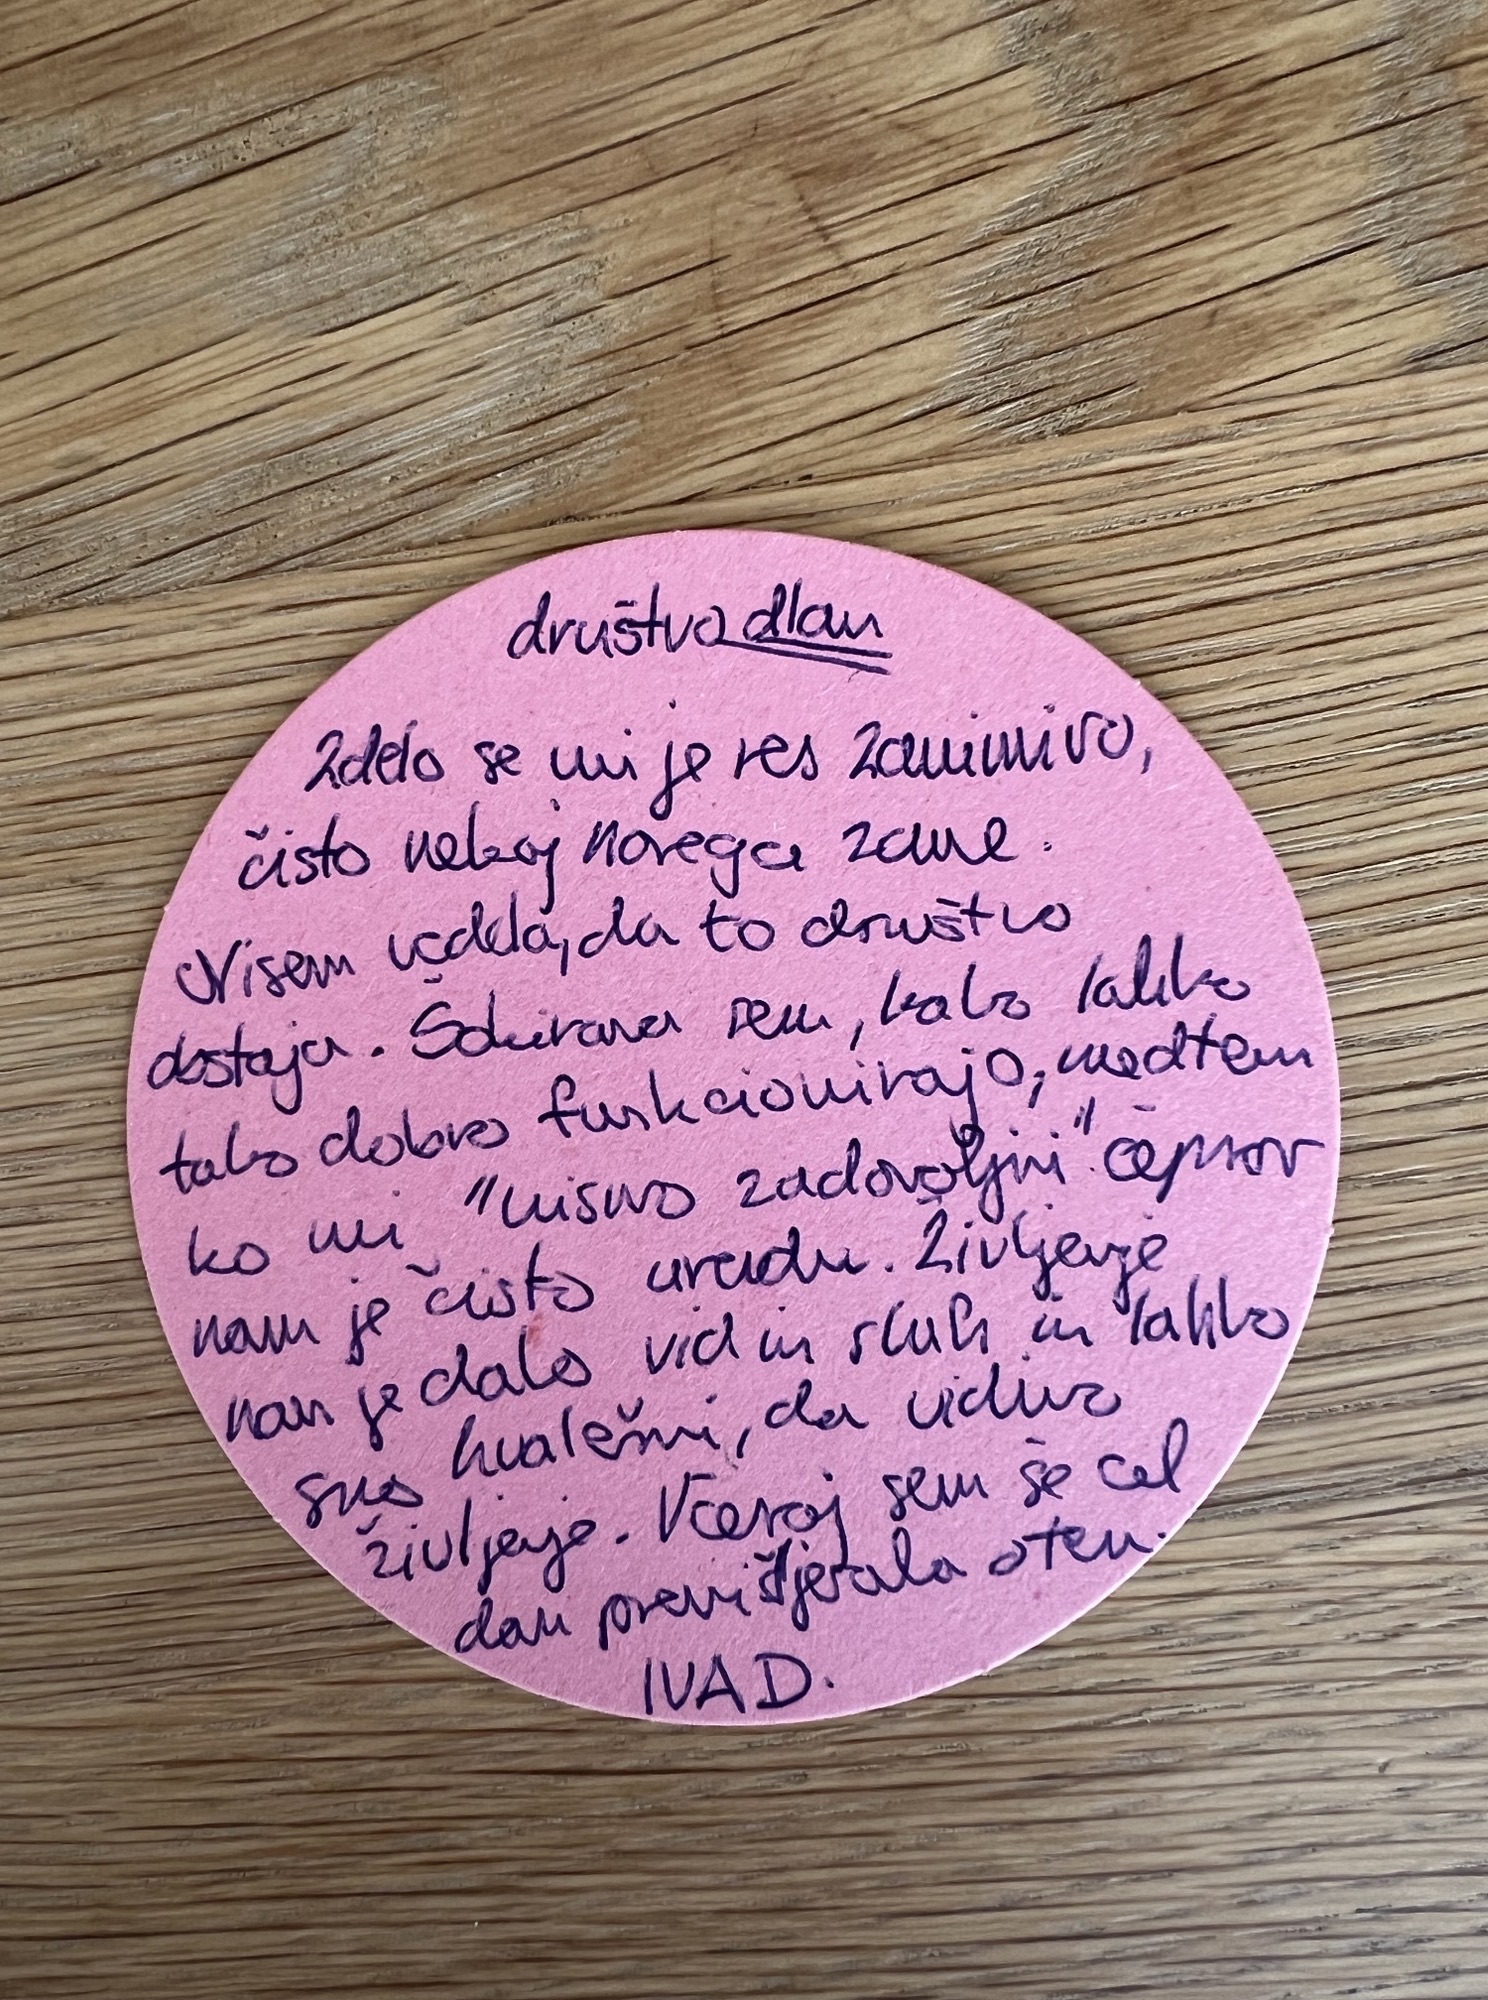 društvo dlan
Zdelo se mi je res zanimivo,
čisto nekaj novega zame.
Nisem vedela, da to društvo
obstaja. Šokirana sem, kako lahko
tako dobro funkcionirajo, medtem
ko mi "nismo zadovoljni" čeprav
nam je čisto uredu. Življenje
nam je dalo vid in sluh in lahko
smo hvaležni, da vidimo
življenje. Včeraj sem še cel
dan premišljevala o tem.
IVA D.